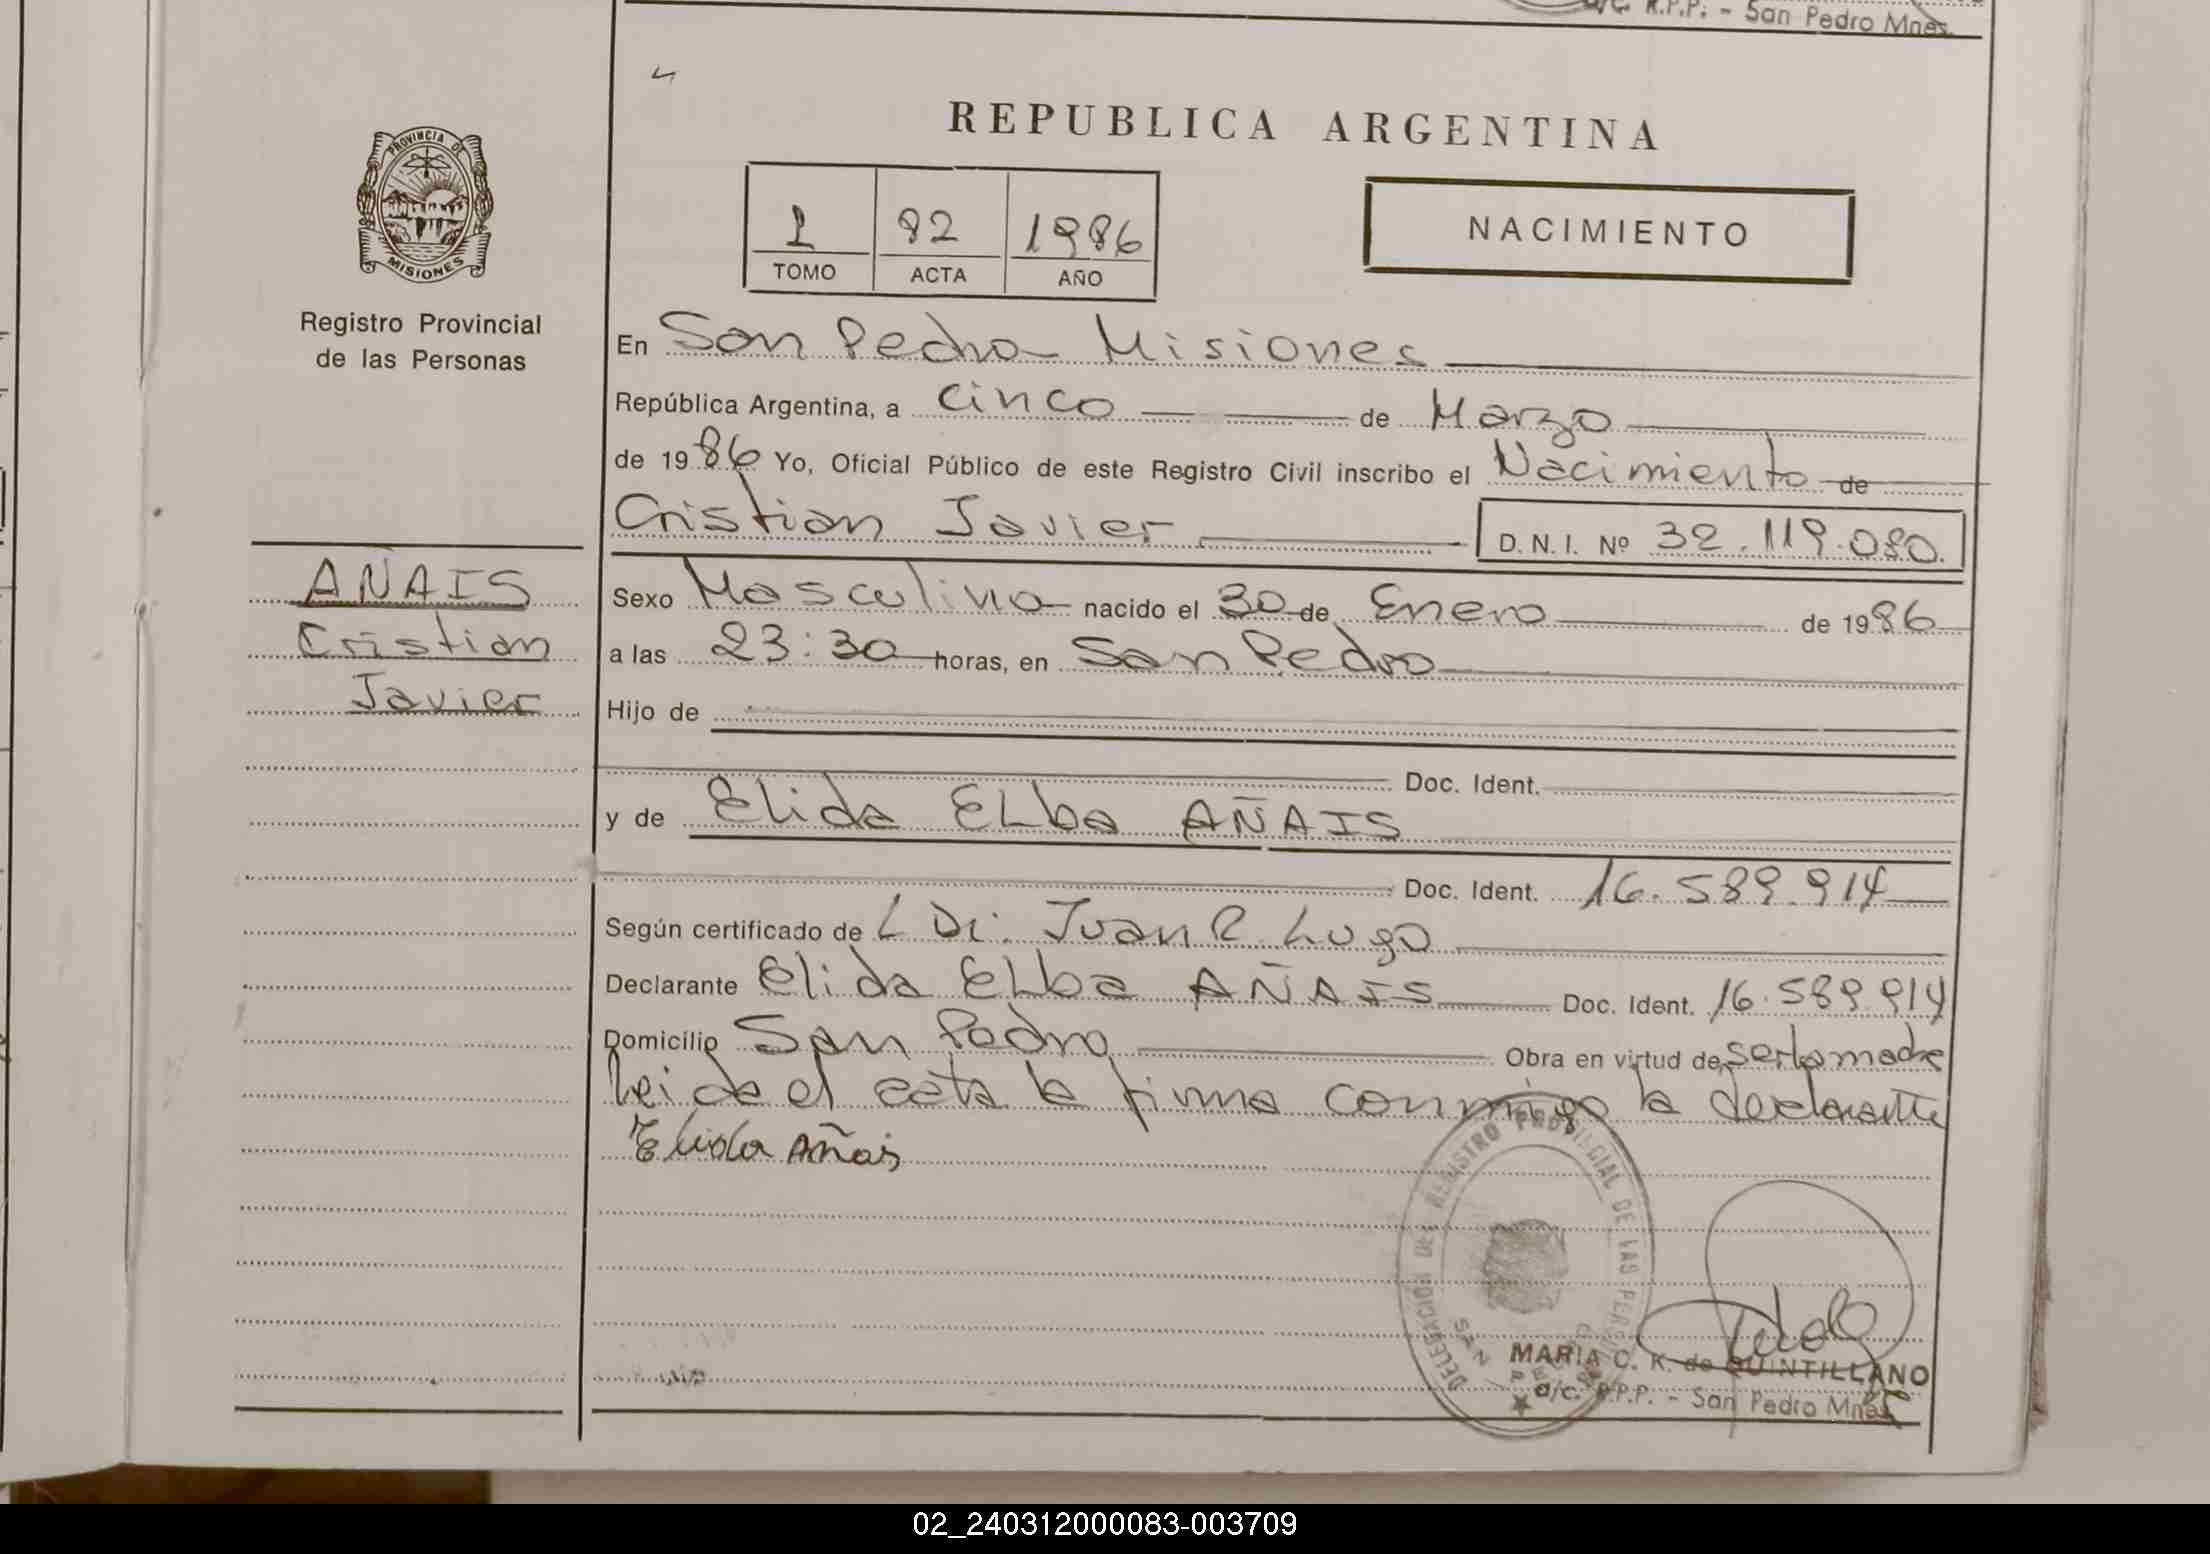 a/c. R.P.P. - San Pedro Mnes.
REPUBLICA ARGENTINA
PROVINCIA DE MISIONES
Registro Provincial
de las Personas
1 82 1986
TOMO ACTA AÑO
NACIMIENTO
En San Pedro Misiones
República Argentina, a cinco de Marzo
de 1986 Yo, Oficial Público de este Registro Civil inscribo el Nacimiento de
Cristian Javier D. N. I. Nº 32.119.080.
AÑAIS
Cristian
Javier
Sexo Masculino nacido el 30 de Enero de 1986
a las 23:30 horas, en San Pedro
Hijo de
Doc. Ident.
y de Elida ELba AÑAIS
Doc. Ident. 16.589.914
Según certificado de L Dr. Juan R. Lugo
Declarante Elida ELba AÑAIS Doc. Ident. 16.589.914
Domicilio San Pedro Obra en virtud de ser la madre
Leida el acta la firma conmigo la declarante
Elida Añais
DELEGACION DEL REGISTRO PROVINCIAL DE LAS PERSONAS
SAN PEDRO
MARIA C. K. de QUINTILLANO
a/c. R.P.P. - San Pedro Mnes
02_240312000083-003709